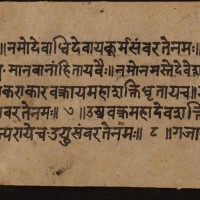 ॥नमोदेवाधिदेवायकूर्मसंवरतेनमः॥
मानवानांहितायवै॥नमोनमस्तेदेवेश
कराकारवक्त्रायमहाशक्तिधृतायच॥
वरतेनमः॥७॥उग्रवक्त्रमहादेवशक्ति
परायेच उग्रसंवरतेनमः॥८॥गजा